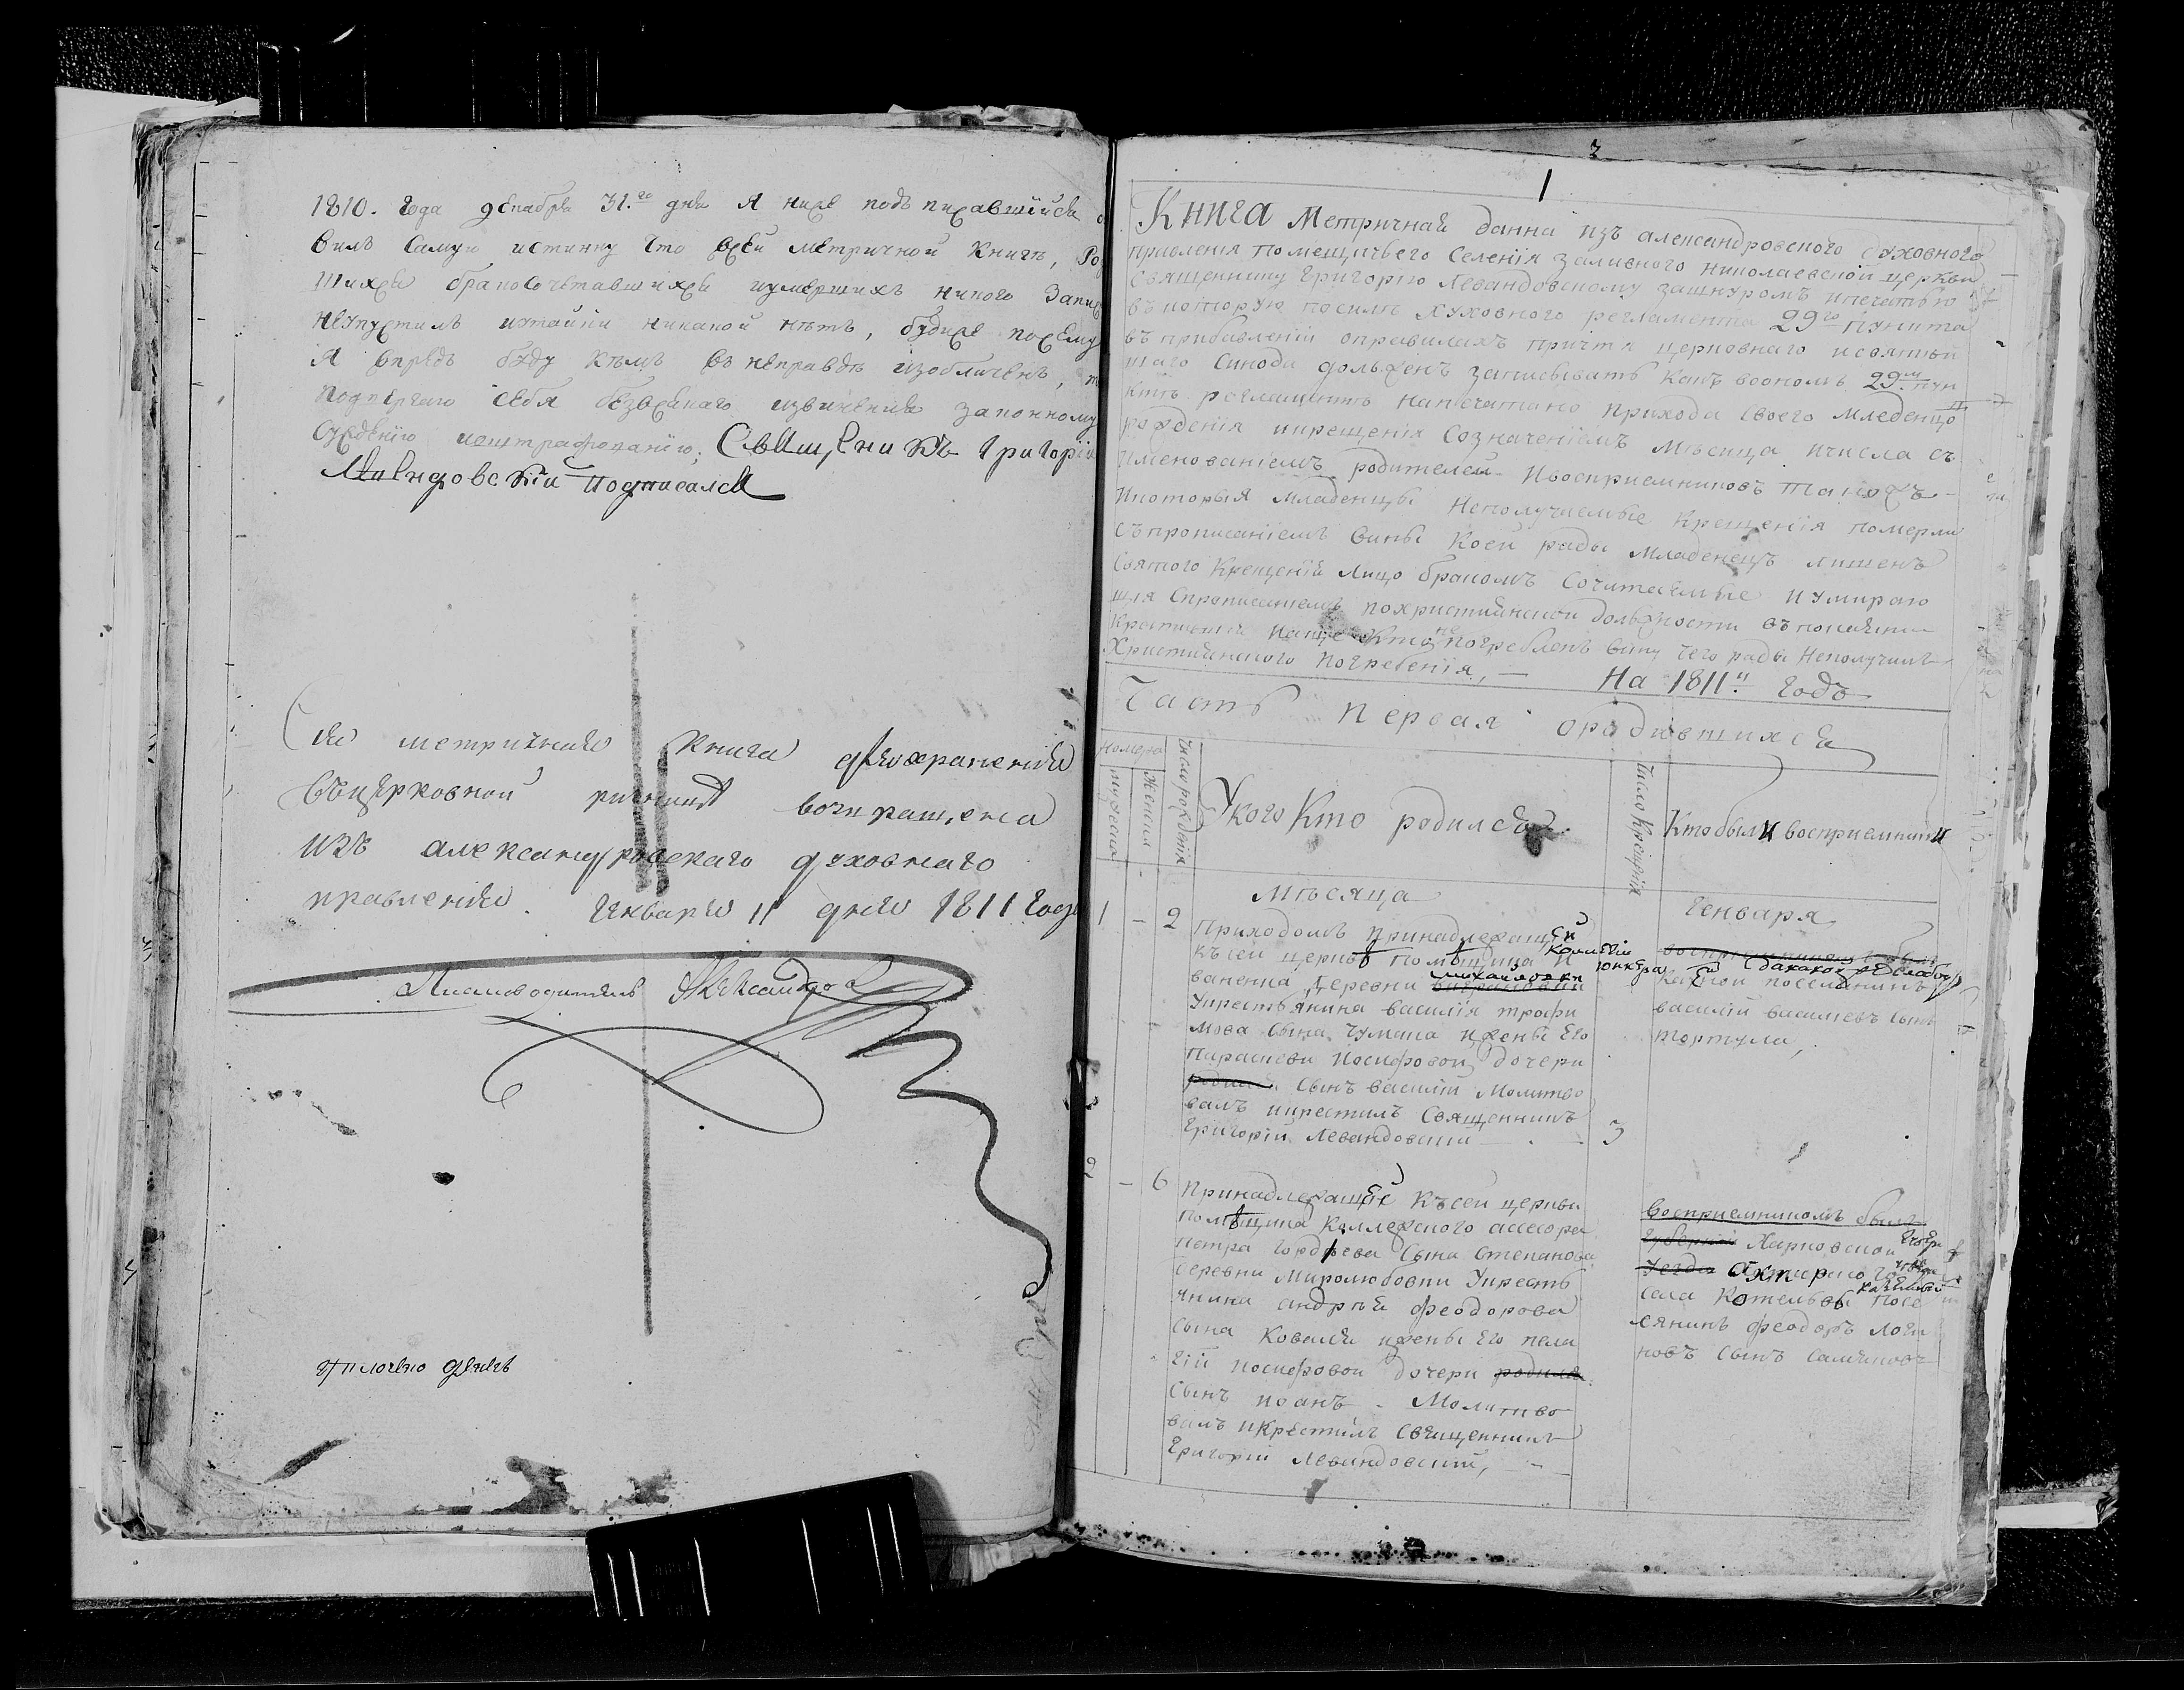 1810. года декабря 31.го дня я ниже подъ писавшійся
вилъ самую истинну что всей метричной Книгѣ, Ро
шихся бракосочетавшихся иумершихъ никого
неупустилъ иутайки никакой нѣтъ, будиже посему
я впредь буду кѣмъ въ неправдѣ изобличенъ,
подвергаю себя безвсякаго извиненія законному
сужденію иештрафованію; Священикъ Григорій
Левандовскій подписался
Сія метричная книга дляхраненія
въцерковной ризницѣ возвращена
изъ александровскаго духовнаго
правленія. Генваря 11 дня 1811 года
Писмоводитель Александро
2
1
Книга Метричная данна изъ александровского духовного
правленія помещичьего селенія заливного николаевской церкви
священнику Григорію Левандовскому зашнуромъ ипечатью
въкоторую посилѣ духовного регламента 29го пункта
въприбавленіи оправилахъ причта церковнаго исвятѣй
шаго Синода долженъ записывать какъ воономъ 29м пун
ктѣ регламента напечатано прихода своего младенцо
рожденія икрещенія Созначеніемъ Мѣсяца ичисла съ
именованіемъ родителей Ивосприемниковъ также
Икоторыя младенцы Неполучаемые Крещенія померли
съпрописаніемъ вины коей рады младенецъ лишенъ
Святого Крещенія Лицо бракомъ Сочитаемые Иумираю
щія Спрописаніемъ похристиянской должности въпокаяни
Кто не погребленъ вину чего рады Неполучилъ
Християнского погребенія, — На 1811й годъ
Часть первая ородившихся
Номера
мужеска
женска
число рожденія
Укого Кто родился
Число крещенія
Кто были восприемники
Мѣсяца
Генваря
1 - 2
Приходомъ принадлежащей
късей церквѣ помѣщика И
коллегіи юнкера
ваненка деревни
михайловки
Укрестьянина василія трофи
мова сына Чумака ижены Его
Параскеви Иосифовой дочери
родился Сынъ василій Молитво
валъ икрестилъ Священникъ
Григорій Левандовскій
3
казѣной поселянинъ
василій василіевъ сынъ
тортула,
2 - 6
Принадлежащіе Късей церкви
помѣщика Коллежского ассесора
петра гордѣева Сына Степанова
деревни Миролюбовки Укресть
янина андрѣя феодорова
Сына Коваля ижены Его пела
гіи Иосифовой дочери родился
Сынъ иоанъ. Молитво
валъ икрестилъ Священникъ
Григорій Левандовскій,
Восприемникомъ былъ
губерніи Харковской
уезда ахтирко
села Котельвы
казѣнный
посе
лянинъ феодоръ логи
новъ Сынъ